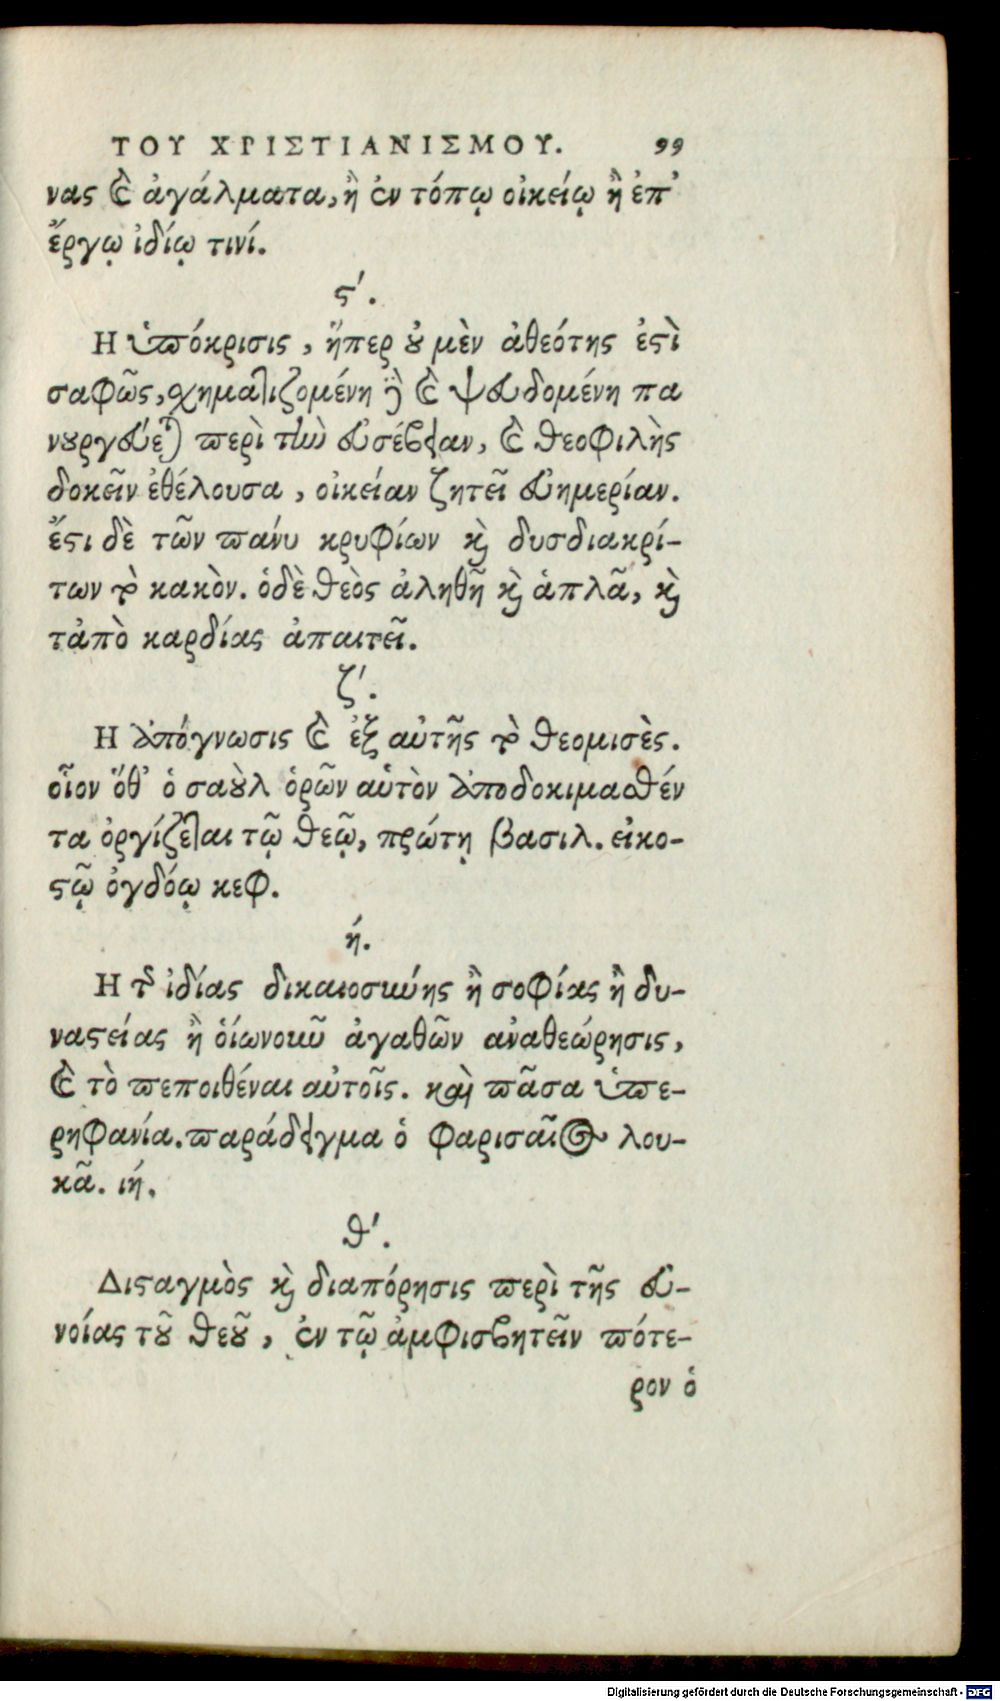 ΤΟΥ ΧΡΙΣΤΙΑΝΙΣΜΟΥ. 99
νας καὶ ἀγάλματα, ἢ ἐν τόπῳ οἰκείῳ ἢ ἐπ'
ἔργῳ ἰδίῳ τινί.
ϛ'.
Η ὑπόκρισις, ἥπερ οὐ μὲν ἀθεότης ἐστὶ
σαφῶς, σχηματιζομένη δὲ καὶ ψευδομένη πα
νουργεύεται περὶ τὴν εὐσέβειαν, καὶ θεοφιλὴς
δοκεῖν ἐθέλουσα, οἰκείαν ζητεῖ εὐημερίαν.
ἔστι δὲ τῶν πάνυ κρυφίων καὶ δυσδιακρί-
των τὸ κακὸν. ὁδὲ θεὸς ἀληθῆ καὶ ἁπλᾶ, καὶ
τἀπὸ καρδίας ἀπαιτεῖ.
ζ'.
Η ἀπόγνωσις καὶ ἐξ αὐτῆς τὸ θεομισὲς.
οἷον ὅθ' ὁ σαοὺλ ὁρῶν αὑτὸν ἀποδοκιμασθέν
τα ὀργίζεται τῷ θεῷ, πρώτῃ βασιλ. εἰκο-
στῷ ὀγδόῳ κεφ.
ή.
Η τῆς ἰδίας δικαιοσύνης ἢ σοφίας ἢ δυ-
ναστείας ἢ ὁίωνοιοῦ ἀγαθῶν ἀναθεώρησις,
καὶ τὸ πεποιθέναι αὐτοῖς. καὶ πᾶσα ὑπε-
ρηφανία. παράδειγμα ὁ φαρισαῖος λου-
κᾶ. ιή.
θ'.
Δισταγμὸς καὶ διαπόρησις περὶ τῆς εὐ-
νοίας τοῦ θεοῦ, ἐν τῷ ἀμφισβητεῖν πότε-
ρον ὁ
Digitalisierung gefördert durch die Deutsche Forschungsgemeinschaft - DFG